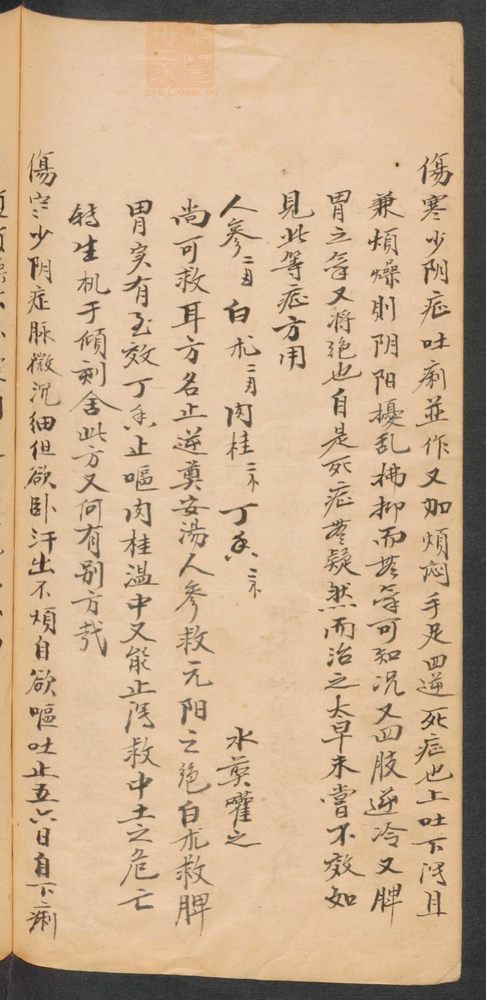 傷寒少阴症吐痢並作又加煩悶手足四逆死症也上吐下泻且
兼煩燥則阴阳擾乱拂抑而無斉可知况又四肢逆冷又脾
胃之斉又将绝也自是死症無疑然而治之大早未嘗不效如
見此等症方用
人參二两 白朮二两 肉桂二个 丁香二个 水煎灌之
尚可救耳方名止逆奠安湯人參救元阳之绝白朮救脾
胃实有至效丁香止嘔肉桂温中又能止泻救中土之危亡
转生机于傾刻舍此方又何有别方哉
傷寒少阴症脉微沉细但欲卧汗出不煩自欲嘔吐止五六日自下痢